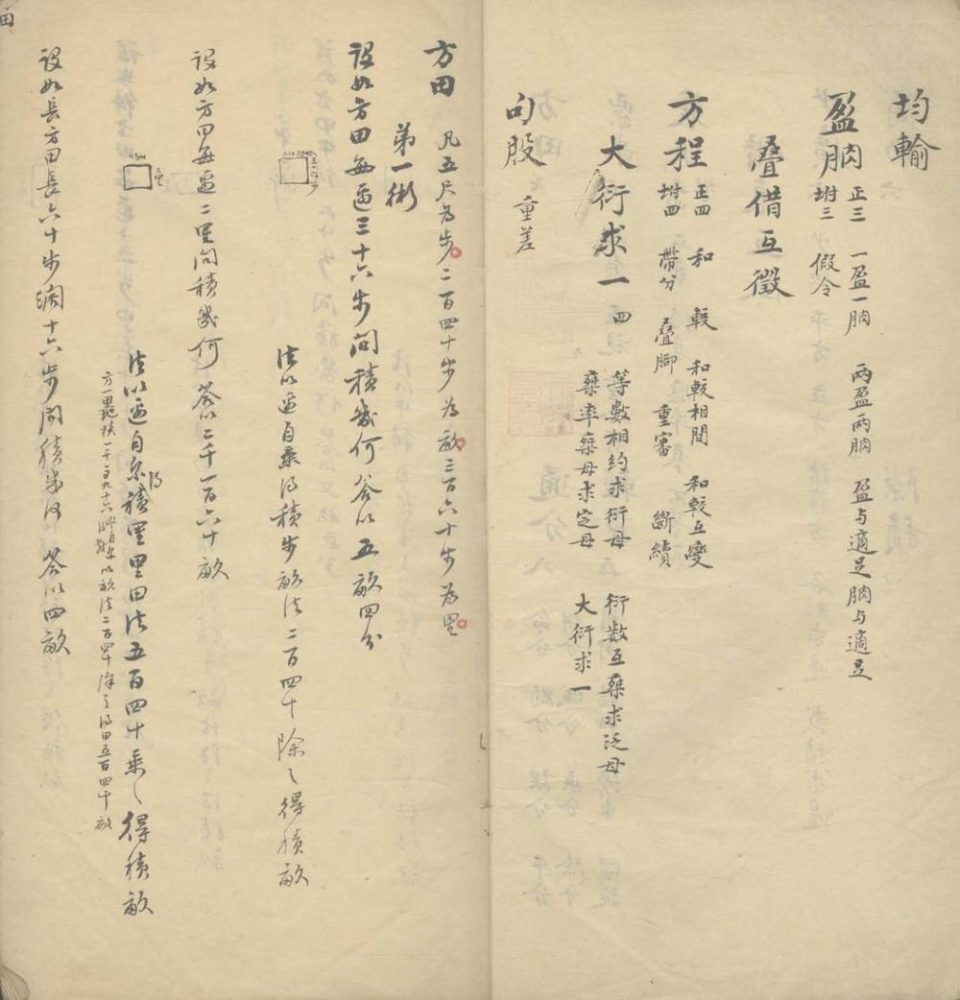 均輸
盈朒 正三 一盈一朒 兩盈兩朒 盈与適足朒与適足
坿三 假令
疊借互徵
方程 正四 和 較 和較相間 和較互變
坿四 帶分 疊脚 重審 斷續
大衍求一 四 等數相約求衍母 衍数互乘求泛母
乘率乘母求定母 大衍求一
句股 重差
方田 凡五尺為步二百四十步為畝三百六十步為里
弟一術
設如方田每邊三十六步問積幾何 答以五畝四分
法以邊自乘得積步畝法二百四十除之得積畝
設如方田每邊二里問積幾何 答以二千一百六十畝
里
法以邊自乘得積里里田法五百四十乘之得積畝
方一里積十二万九千六百步以畝法二百四十除之得田五百四十畝
設如長方田長六十步濶十六步問積幾何 答以四畝